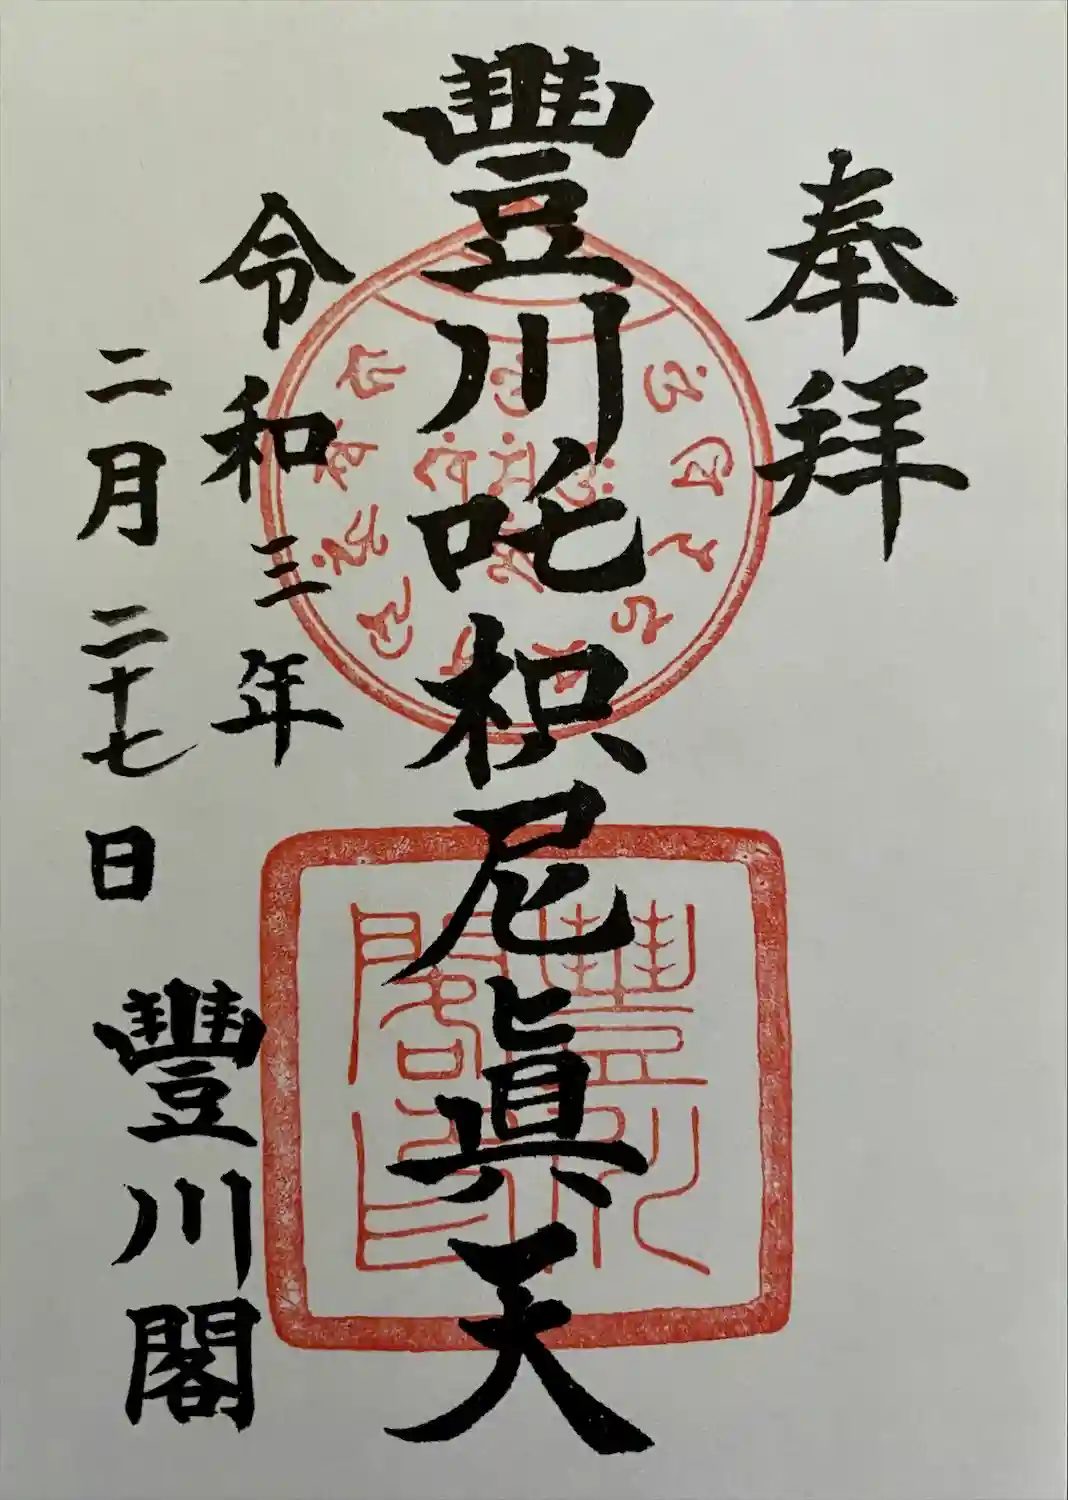 奉拜
豐川吒枳尼眞天
令和三年
二月二十七日
豐川閣
豐川閣印